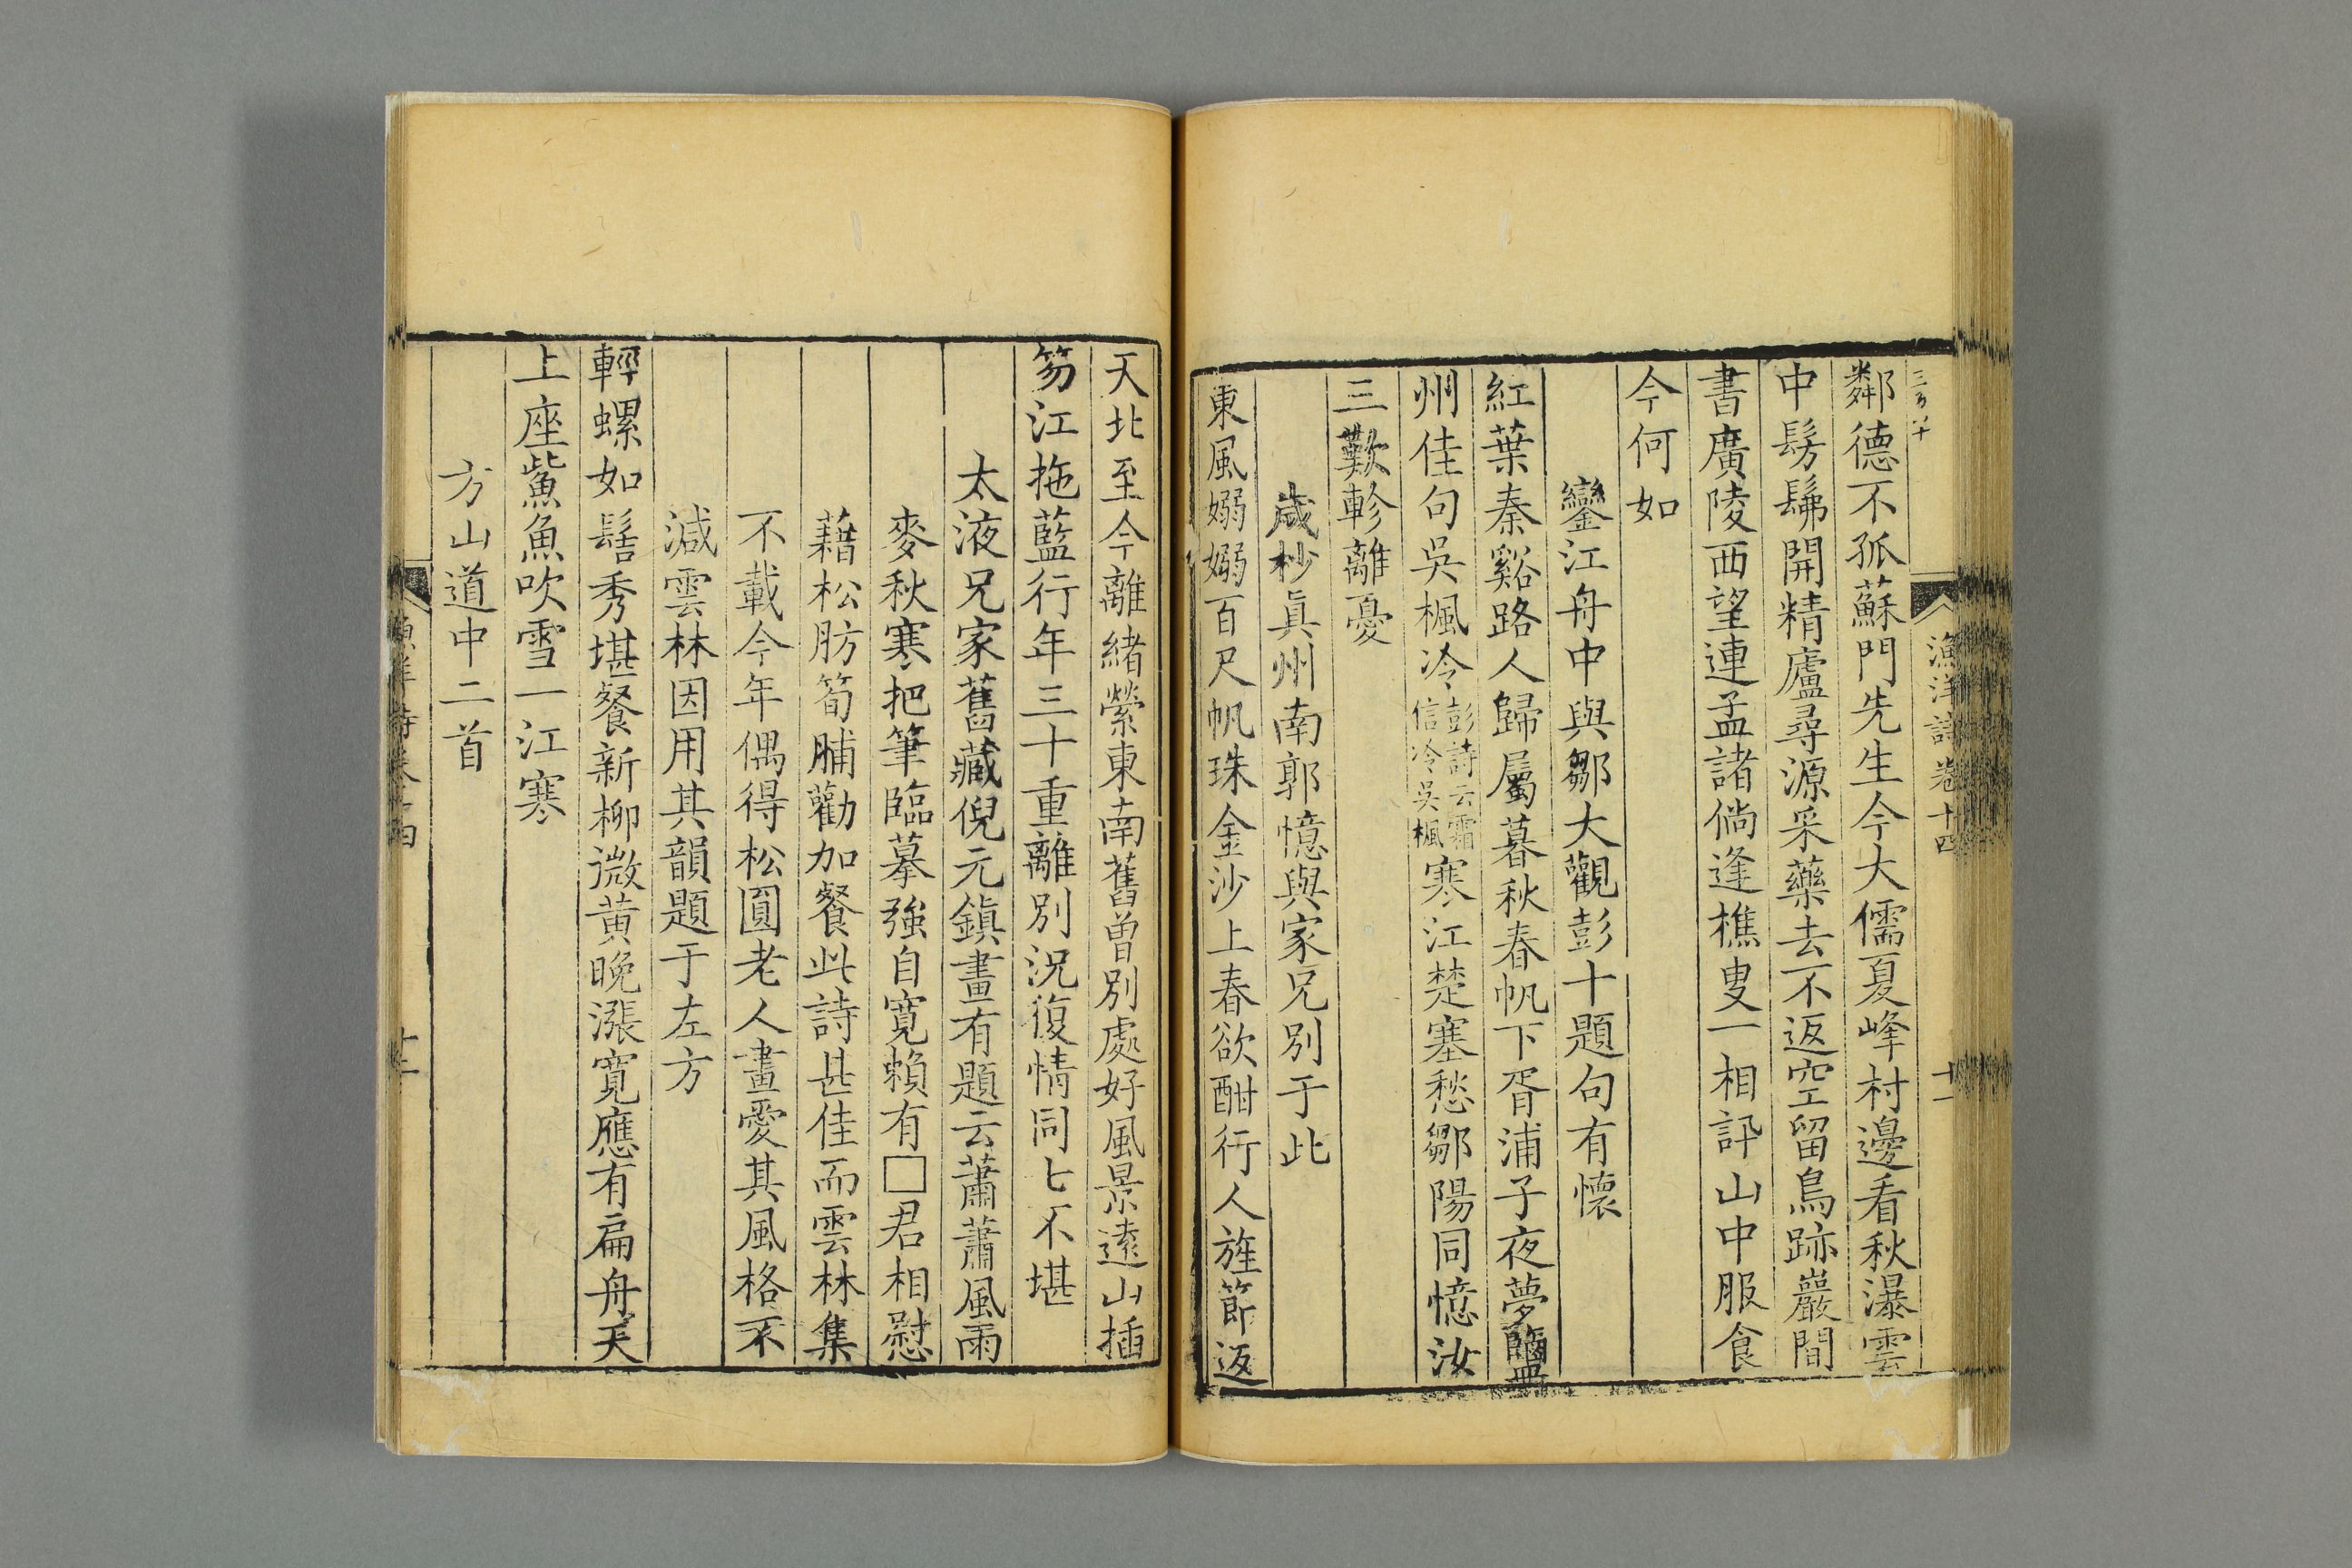 漁洋詩 卷十四 十一
鄰德不孤蘇門先生今大儒夏峰村邊看秋瀑雲
中髣髴開精廬尋源采藥去不返空留鳥跡巖間
書廣陵西望連孟諸倘逢樵叟一相訊山中服食
今何如
鑾江舟中與鄒大觀彭十題句有懷
紅葉秦谿路人歸屬暮秋春帆下胥浦子夜夢鹽
州佳句吳楓冷彭詩云霜信冷吳楓寒江楚塞愁鄒陽同憶汝
三歎軫離憂
歲杪眞州南郭憶與家兄別于此
東風嫋嫋百尺帆珠金沙上春欲酣行人旌節返
天北至今離緒縈東南舊曾別處好風景遠山插
笏江拖藍行年三十重離別況復情同七不堪
太液兄家舊藏倪元鎮畫有題云蕭蕭風雨
麥秋寒把筆臨摹強自寬賴有□君相慰
藉松肪筍脯勸加餐此詩甚佳而雲林集
不載今年偶得松圓老人畫愛其風格不
減雲林因用其韻題于左方
輕螺如髻秀堪餐新柳微黃晚漲寬應有扁舟天
上座鮆魚吹雪一江寒
方山道中二首
漁洋詩卷十四 十一